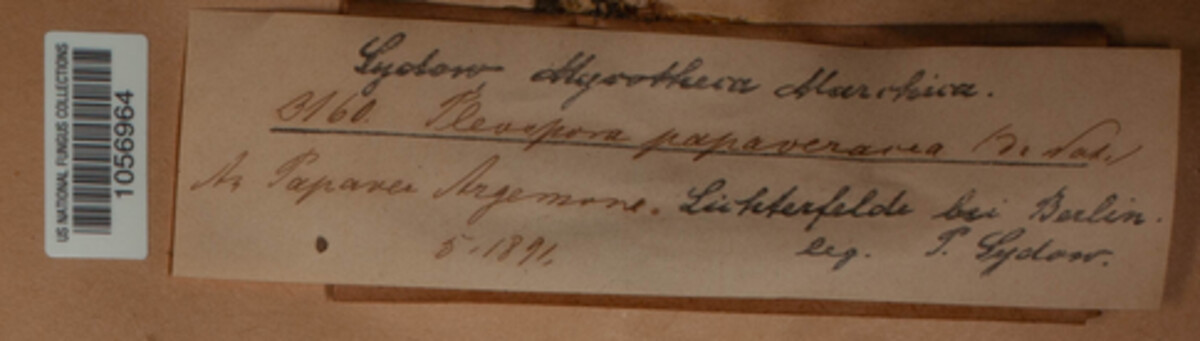 US NATIONAL FUNGUS COLLECTIONS
1056964
Sydow Mycotheca Marchica.
3160. Pleospora papaveracea (De Not.)
An Papaver Argemone. Lichterfelde bei Berlin.
5.1891. leg. P. Sydow.